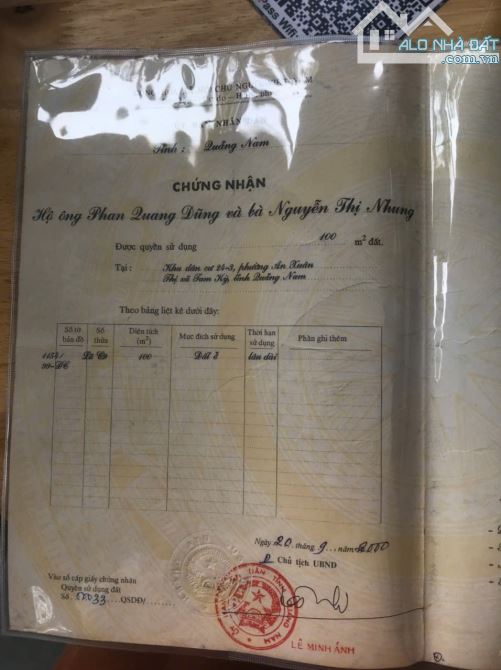 ss Wifi
ALO NHÀ ĐẤT
.com.vn
CHỦ NGHĨA
NHÂN DÂN
Tỉnh : Quảng Nam
CHỨNG NHẬN
Hộ ông Phan Quang Dũng và bà Nguyễn Thị Nhung
Được quyền sử dụng 100 m² đất.
Tại : Khu dân cư 24-3, phường An Xuân
Thị xã Tam Kỳ, tỉnh Quảng Nam
Theo bảng liệt kê dưới đây:
Số tờ bản đồ Số thửa Diện tích (m²) Mục đích sử dụng Thời hạn sử dụng Phần ghi thêm
99-ĐC 100 Đất ở lâu dài
Ngày 20 tháng 9 năm 2000
Chủ tịch UBND
Vào sổ cấp giấy chứng nhận
Quyền sử dụng đất
Số QSDĐ/
LÊ MINH ÁNH